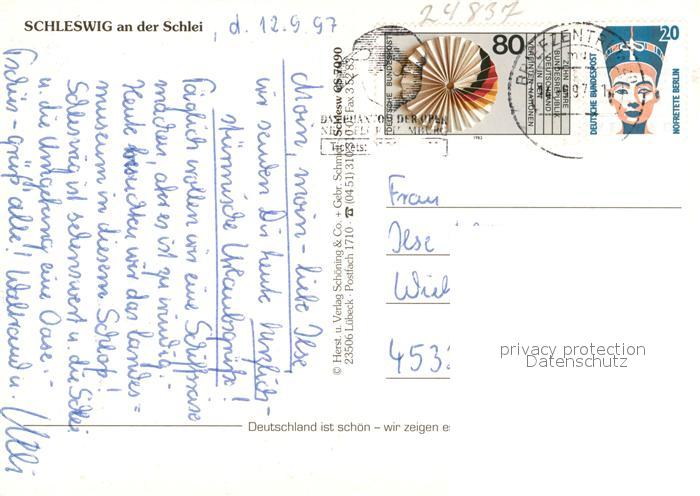 SCHLESWIG an der Schlei
, d. 12.9.97
24837
Moin, moin - liebe Ilse,
wir senden Dir heute herzlich-
stürmische Urlaubsgrüße!
Täglich wollen wir eine Schiffsreise
machen aber es ist zu windig.
Heute besuchten wir das Landes=
museum in diesem Schloß!
Schleswig ist sehenswert u. die Schlei
u. die Umgebung eine Oase. -
Tschüs - grüß alle! Waltraud u.
Willi
© Herst. u. Verlag Schöning & Co. + Gebr. Schmidt
23506 Lübeck · Postfach 1710 · ☎ (0451) 31 03
Schlesw CS 7090
80
DEUTSCHE BUNDESPOST
ZEHN JAHRE
BUNDESREPUBLIK
DEUTSCHLAND
IN DEN
VEREINTEN NATIONEN
1983
Tickets:
20
DEUTSCHE BUNDESPOST
NOFRETETE BERLIN
Frau
Ilse
453
privacy protection
Datenschutz
Deutschland ist schön – wir zeigen es